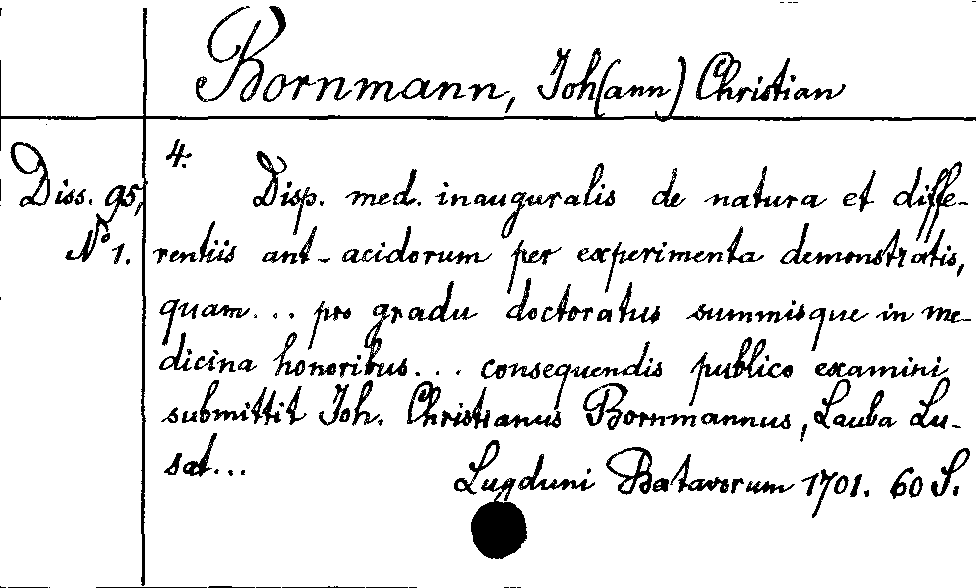 Bornmann, Joh(ann) Christian
4.
Diss. 95, Disp. med. inauguralis de natura et diffe-
No 1. rentiis ant-acidorum per experimenta demonstratis,
quam... pro gradu doctoratus summisque in me-
dicina honoribus... consequendis publico examini
submittit Joh. Christianus Bornmannus, Lauba Lu-
sat...
Lugduni Batavorum 1701. 60 S.